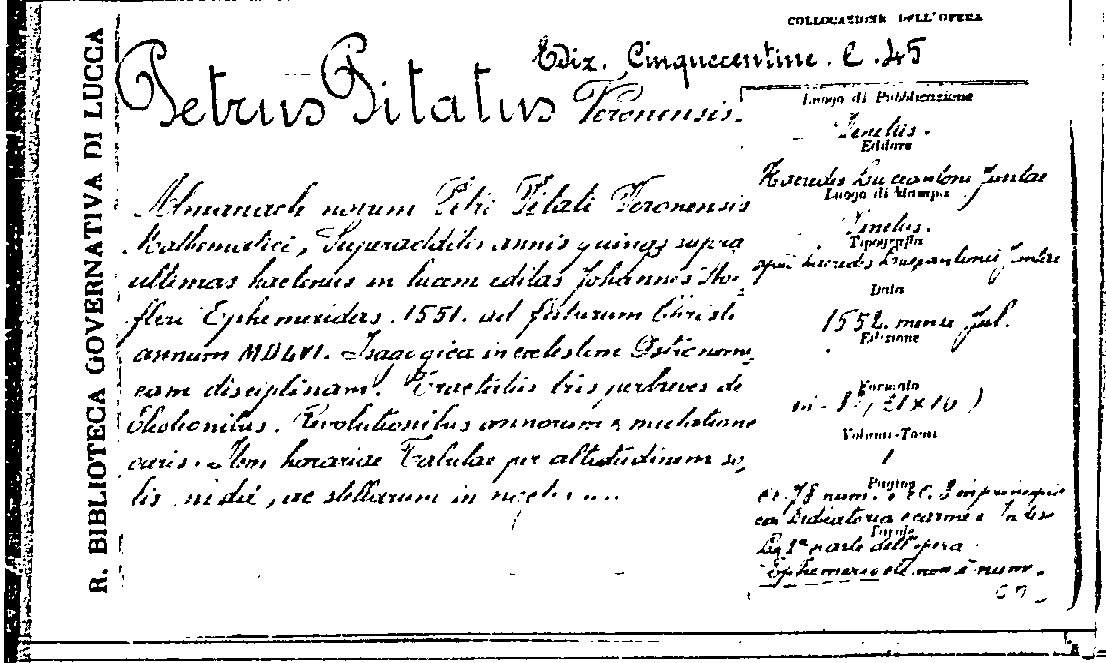 COLLOCAZIONE DELL'OPERA
Ediz. Cinquecentine. C. 45
R. BIBLIOTECA GOVERNATIVA DI LUCCA
Petrus Pitatus Veronensis.
Almanach novum Petri Pitati Veronensis
Mathematici, Superadditis annis quinqs supra
ultimas hactenus in lucem editas Johannis Sto-
fleri Ephemerides. 1551. ad futurum Christi
annum MDLVI. Isagogica in coelestem Astronomi-
cam disciplinam. Tractatus tris perbreves de
Electionibus. Revolutionibus annorum &
aeris. Item horariae Tabulae per altitudinem so-
lis in die, ac stellarum in nocte ....
Luogo di Pubblicazione
Venetiis.
Editore
Haeredes Lucaeantoni Juntae
Luogo di Stampa
Venetiis.
Tipografia
apud haeredes Lucaeantonij Juntae
Data
1552. mense Jul.
Edizione
Formato
in-8° (21 x 16)
Volumi-Tomi
1
Pagine
cc. 78 num. e cc. in principio
con dedicatoria e carme
Tavole
La 1ª parte dell'opera
Ephemerides non è num.